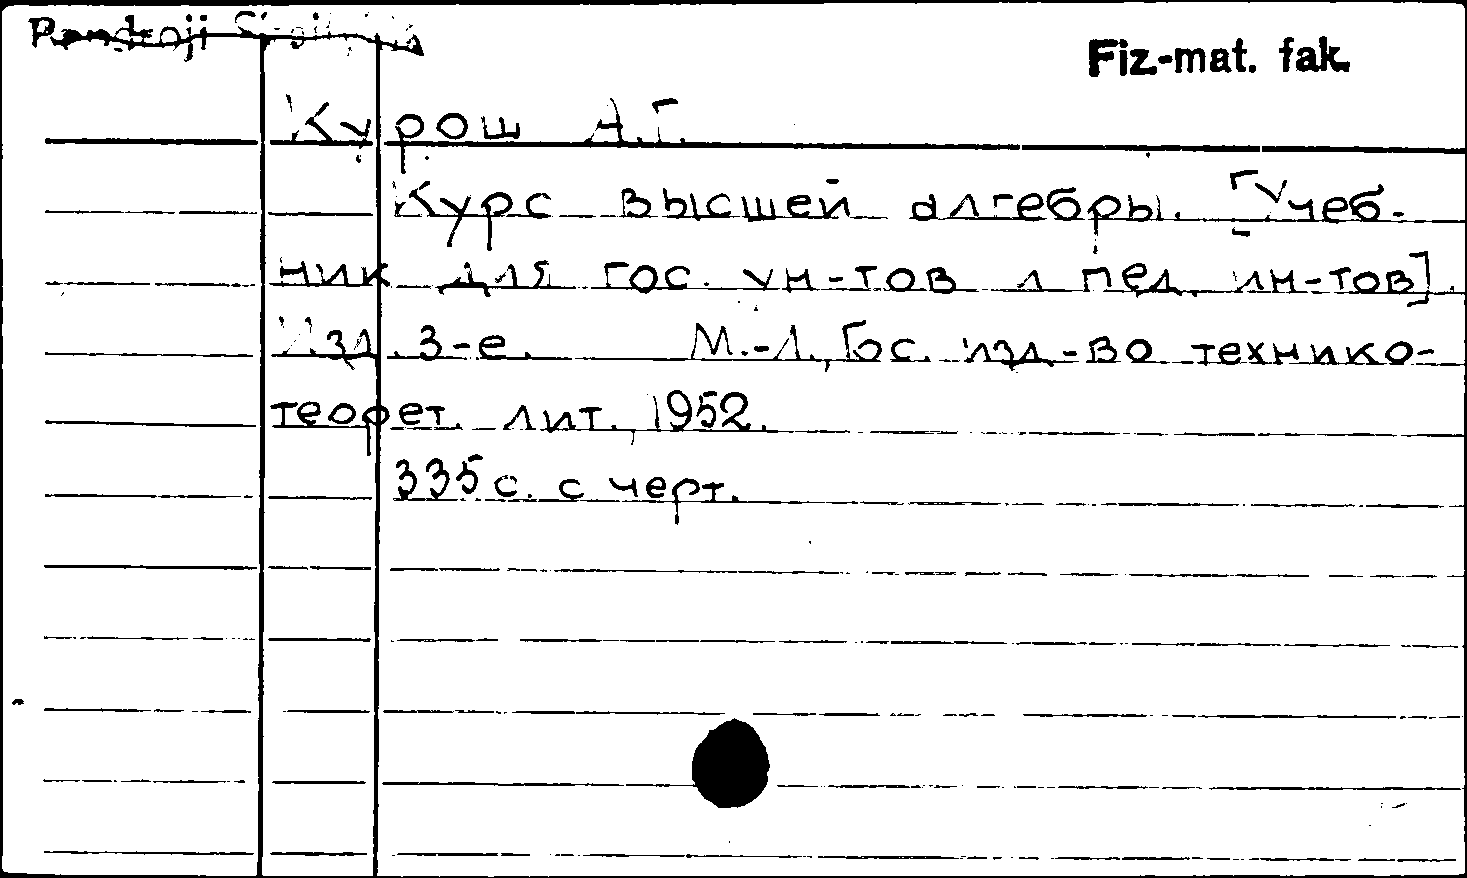 Fiz.-mat. fak.
Курош А.Г.
Курс высшей алгебры. [Учеб-
ник для гос. ун-тов и пед. ин-тов].
Изд. 3-е. М.-Л., Гос. изд-во технико-
теорет. лит., 1952.
335 с. с черт.